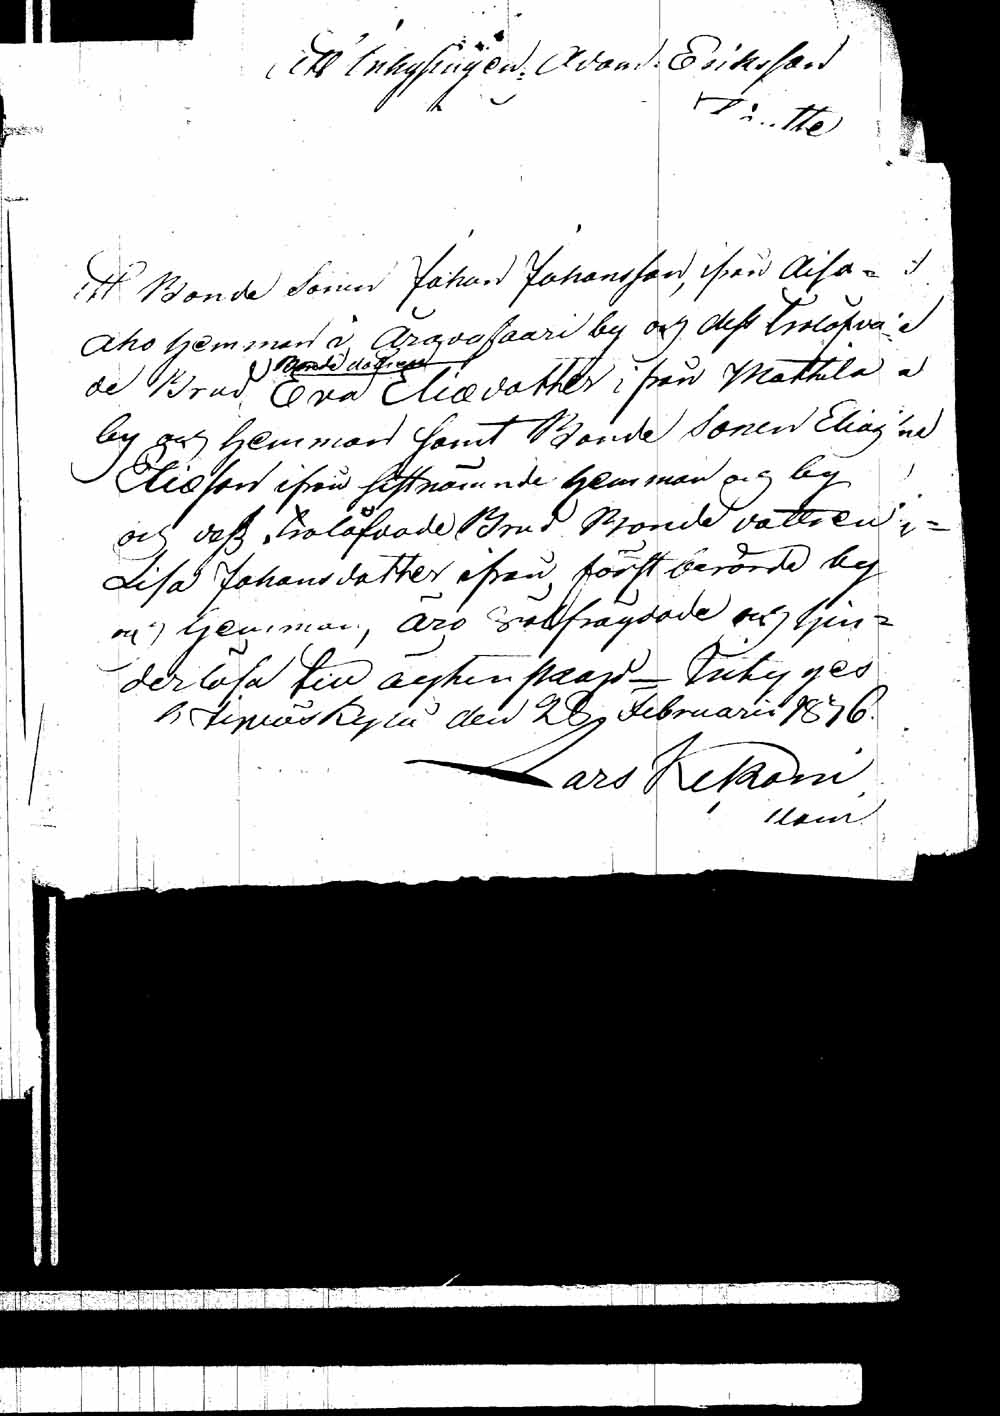 Att Inhysingen Adam Eriksson
Att Bonde Sonen Johan Johansson, ifrån Aisa=
aho hemman i Äravasaari by och dess Trolofva
de Brud Bonde dottren Eva Eliædotther ifrån Mattila
by och hemman samt Bonde Sonen Elias
Eliæson ifrån sistnämnde hemman och by
och dess Trolofvade Brud Bonde dottren
Lisa Johansdotther ifrån först berörde by
och hemman, äro hin=
derlösa till ächtenskap — Intyges
den 28 Februarii 1876.
Lars Kekoni